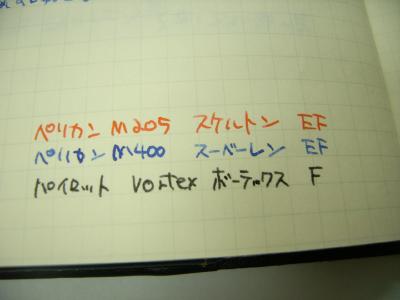 ペリカン M205 スケルトン EF
ペリカン M400 スーベーレン EF
パイロット Vortex ボーテックス F